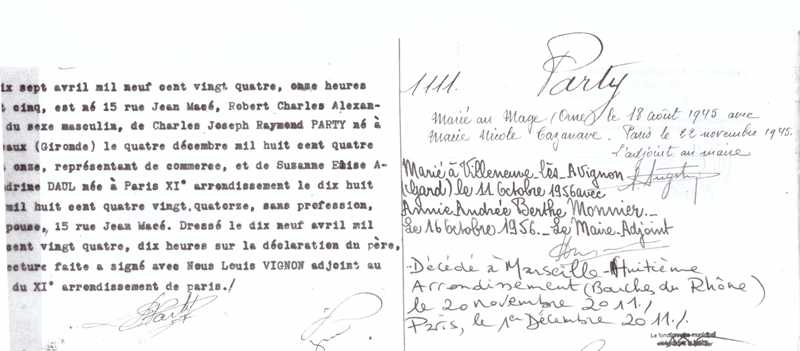 ix sept avril mil neuf cent vingt quatre, onze heures
t cinq, est né 15 rue Jean Macé, Robert Charles Alexan-
du sexe masculin, de Charles Joseph Raymond PARTY né à
eaux (Gironde) le quatre décembre mil huit cent quatre
onze, représentant de commerce, et de Suzanne Elise A-
drine DAUL née à Paris XI° arrondissement le dix huit
mil huit cent quatre vingt.quatorze, sans profession,
pouse, 15 rue Jean Macé. Dressé le dix neuf avril mil
cent vingt quatre, dix heures sur la déclaration du père,
ecture faite a signé avec Nous Louis VIGNON adjoint au
du XI° arrondissement de paris./
Party
1111.
Party
Marié au Mage (Orne) le 18 août 1945 avec
Marie Nicole Cazanave. Paris le 22 novembre 1945.
L'adjoint au maire
Marié à Villeneuve lès Avignon
(Gard) le 11 Octobre 1956 avec
Annie Andrée Berthe Monnier._
Le 16 Octobre 1956._ Le Maire Adjoint
Décédé à Marseille-Huitième
Arrondissement (Bouches du Rhône)
le 20 novembre 2011./
Paris, le 1er Décembre 2011./.
Le fonctionnaire municipal